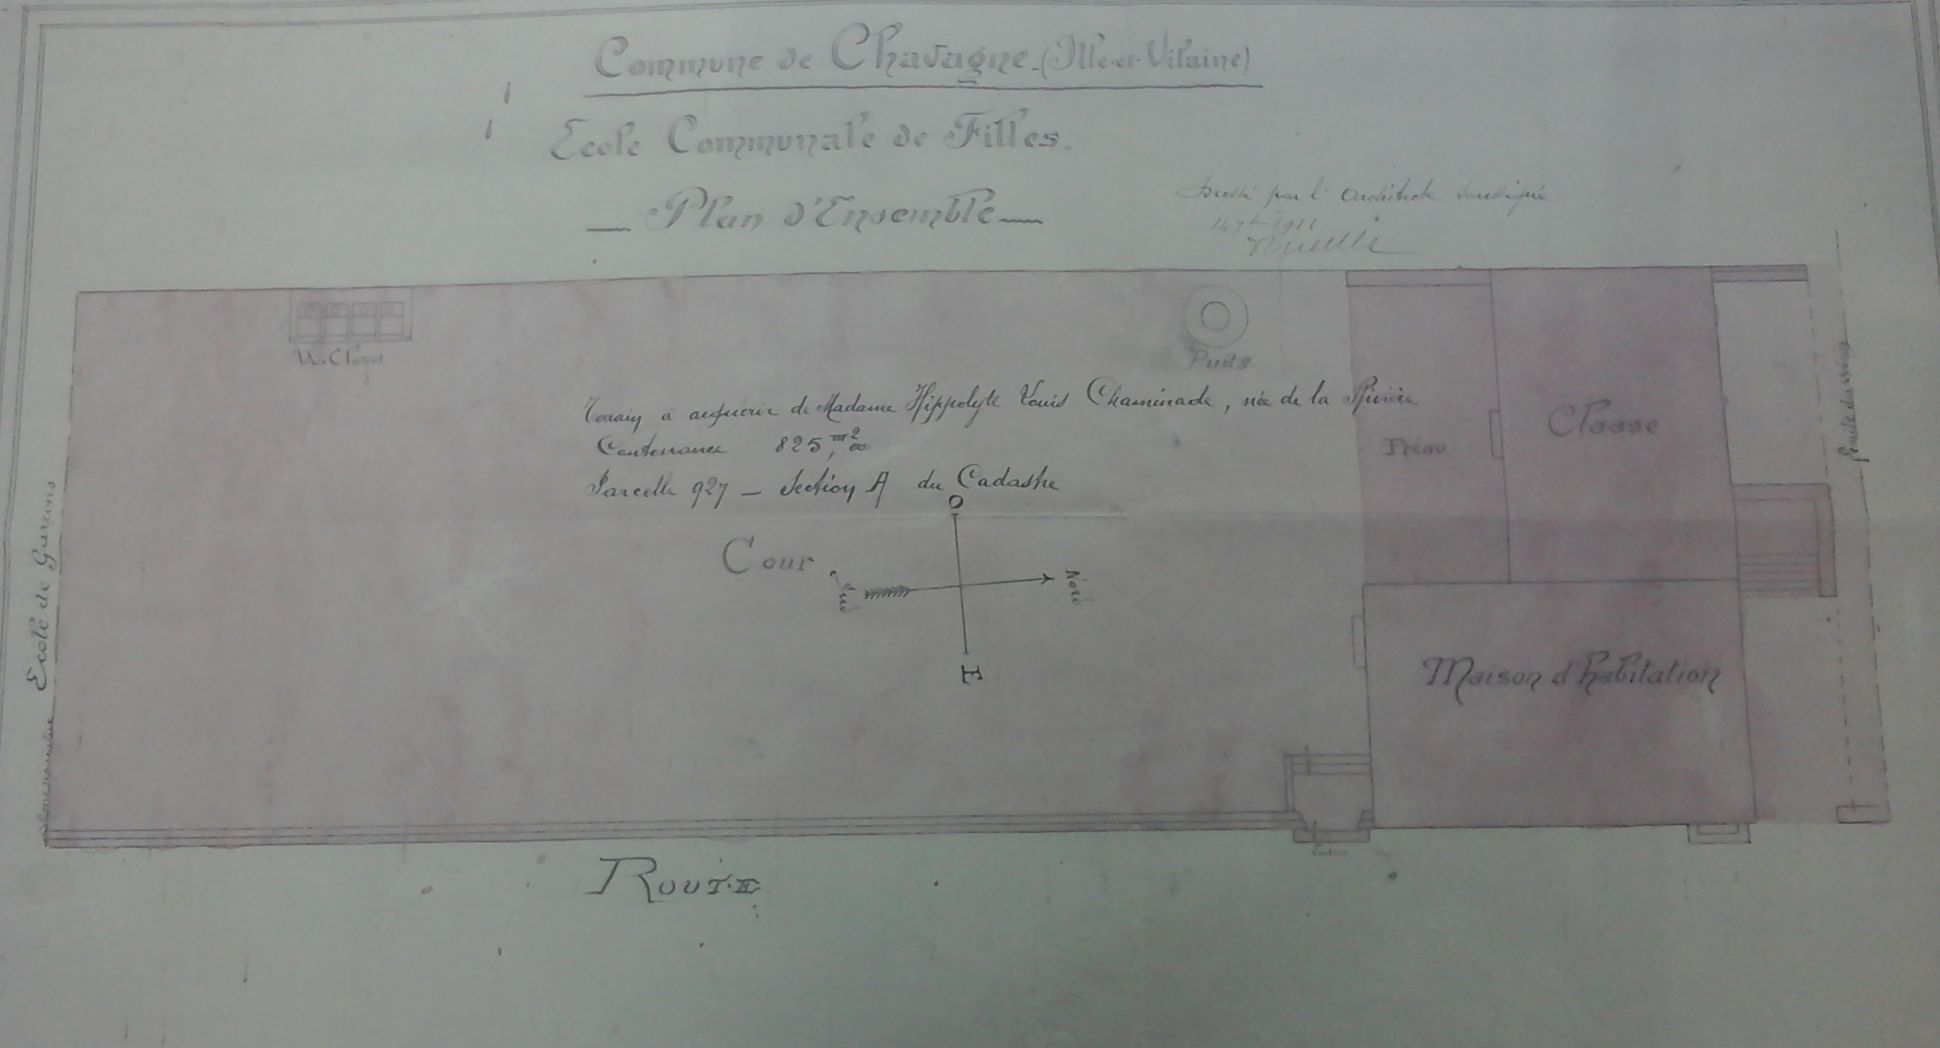 Commune de Chavagne. (Ille-et-Vilaine)
Ecole Communale de Filles.
— Plan d'Ensemble —
Dressé par l'architecte soussigné
1911
W. Closet
Puits
Terrain à acquérir de Madame Hippolyte Louis Chaminade, née de la Rivière
Contenance 825,m2 00
Parcelle 927 — Section A du Cadastre
Préau
Classe
O
Cour
Sud
Nord
E
Maison d'habitation
Ecole de Garçons
Route